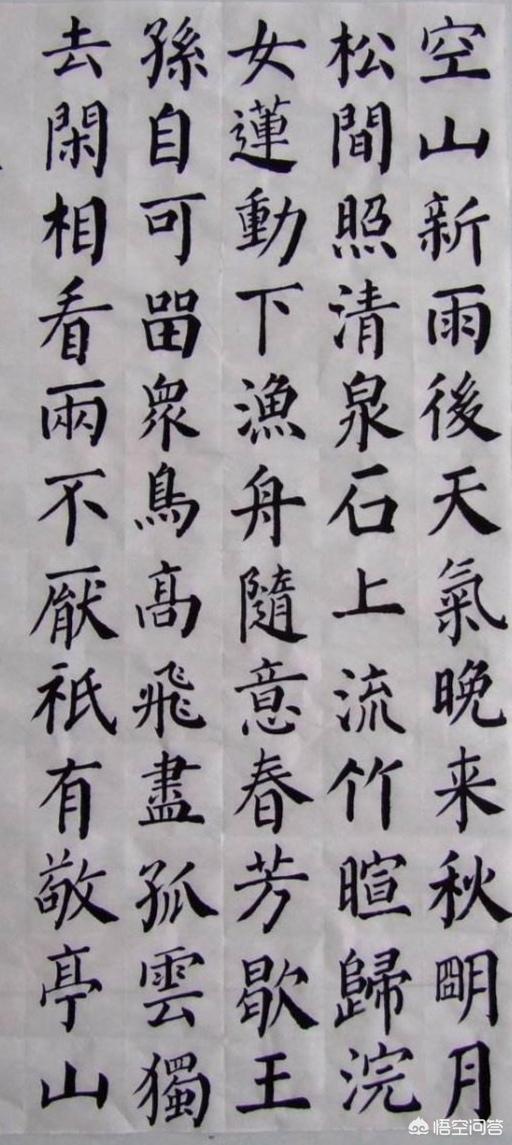 空山新雨後天氣晚来秋朙月
松間照清泉石上流竹暄歸浣
女蓮動下漁舟隨意春芳歇王
孫自可留衆鳥髙飛盡孤雲獨
去閑相看兩不厭祇有敬亭山
悟空问答